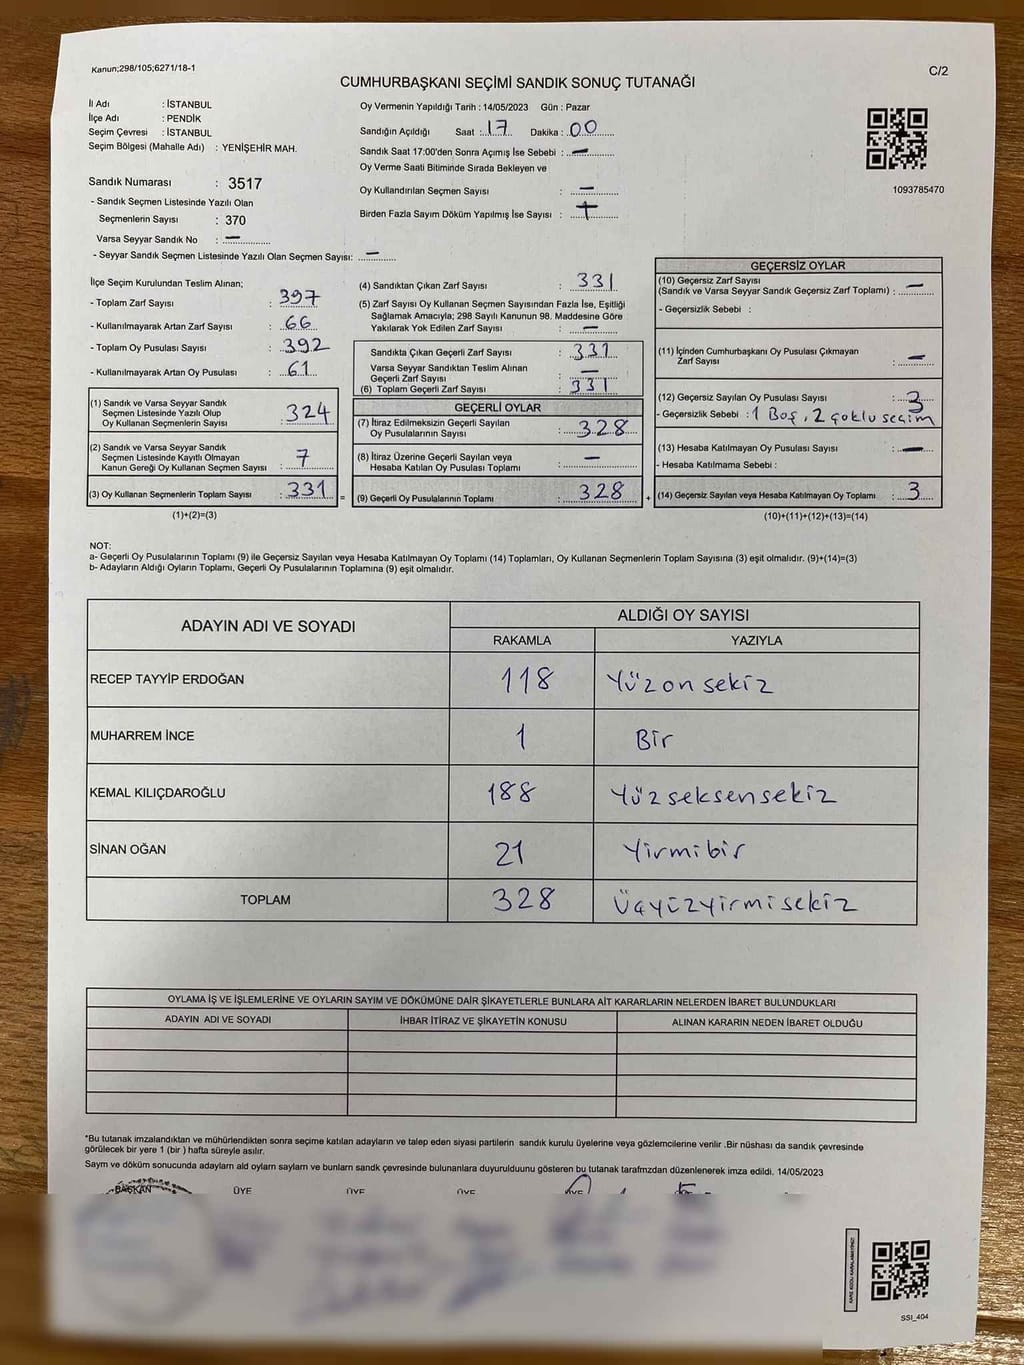 Kanun;298/105;6271/18-1
C/2
CUMHURBAŞKANI SEÇİMİ SANDIK SONUÇ TUTANAĞI
İl Adı : İSTANBUL
İlçe Adı : PENDİK
Seçim Çevresi : İSTANBUL
Seçim Bölgesi (Mahalle Adı) : YENİŞEHİR MAH.
Sandık Numarası : 3517
- Sandık Seçmen Listesinde Yazılı Olan
Seçmenlerin Sayısı : 370
Varsa Seyyar Sandık No : —
- Seyyar Sandık Seçmen Listesinde Yazılı Olan Seçmen Sayısı: —
Oy Vermenin Yapıldığı Tarih : 14/05/2023 Gün : Pazar
Sandığın Açıldığı Saat : 17 Dakika : 00
Sandık Saat 17:00'den Sonra Açımış İse Sebebi : —
Oy Verme Saati Bitiminde Sırada Bekleyen ve
Oy Kullandırılan Seçmen Sayısı : —
Birden Fazla Sayım Döküm Yapılmış İse Sayısı :
1093785470
İlçe Seçim Kurulundan Teslim Alınan;
- Toplam Zarf Sayısı : 397
- Kullanılmayarak Artan Zarf Sayısı : 66
- Toplam Oy Pusulası Sayısı : 392
- Kullanılmayarak Artan Oy Pusulası : 61
(1) Sandık ve Varsa Seyyar Sandık
Seçmen Listesinde Yazılı Olup
Oy Kullanan Seçmenlerin Sayısı : 324
(2) Sandık ve Varsa Seyyar Sandık
Seçmen Listesinde Kayıtlı Olmayan
Kanun Gereği Oy Kullanan Seçmen Sayısı : 7
(3) Oy Kullanan Seçmenlerin Toplam Sayısı : 331
(1)+(2)=(3)
(4) Sandıktan Çıkan Zarf Sayısı : 331
(5) Zarf Sayısı Oy Kullanan Seçmen Sayısından Fazla İse, Eşitliği
Sağlamak Amacıyla; 298 Sayılı Kanunun 98. Maddesine Göre
Yakılarak Yok Edilen Zarf Sayısı : —
Sandıkta Çıkan Geçerli Zarf Sayısı : 331
Varsa Seyyar Sandıktan Teslim Alınan
Geçerli Zarf Sayısı : —
(6) Toplam Geçerli Zarf Sayısı : 331
GEÇERLİ OYLAR
(7) İtiraz Edilmeksizin Geçerli Sayılan
Oy Pusulalarının Sayısı : 328
(8) İtiraz Üzerine Geçerli Sayılan veya
Hesaba Katılan Oy Pusulası Toplamı : —
= (9) Geçerli Oy Pusulalarının Toplamı : 328 +
GEÇERSİZ OYLAR
(10) Geçersiz Zarf Sayısı
(Sandık ve Varsa Seyyar Sandık Geçersiz Zarf Toplamı) : —
- Geçersizlik Sebebi :
(11) İçinden Cumhurbaşkanı Oy Pusulası Çıkmayan
Zarf Sayısı : —
(12) Geçersiz Sayılan Oy Pusulası Sayısı : 3
- Geçersizlik Sebebi : 1 Boş, 2 çoklu seçim
(13) Hesaba Katılmayan Oy Pusulası Sayısı : —
- Hesaba Katılmama Sebebi :
(14) Geçersiz Sayılan veya Hesaba Katılmayan Oy Toplamı : 3
(10)+(11)+(12)+(13)=(14)
NOT:
a- Geçerli Oy Pusulalarının Toplamı (9) ile Geçersiz Sayılan veya Hesaba Katılmayan Oy Toplamı (14) Toplamları, Oy Kullanan Seçmenlerin Toplam Sayısına (3) eşit olmalıdır. (9)+(14)=(3)
b- Adayların Aldığı Oyların Toplamı, Geçerli Oy Pusulalarının Toplamına (9) eşit olmalıdır.
ADAYIN ADI VE SOYADI
ALDIĞI OY SAYISI
RAKAMLA YAZIYLA
RECEP TAYYİP ERDOĞAN 118 Yüzonsekiz
MUHARREM İNCE 1 Bir
KEMAL KILIÇDAROĞLU 188 Yüzseksensekiz
SİNAN OĞAN 21 Yirmibir
TOPLAM 328 Üçyüzyirmisekiz
OYLAMA İŞ VE İŞLEMLERİNE VE OYLARIN SAYIM VE DÖKÜMÜNE DAİR ŞİKAYETLERLE BUNLARA AİT KARARLARIN NELERDEN İBARET BULUNDUKLARI
ADAYIN ADI VE SOYADI İHBAR İTİRAZ VE ŞİKAYETİN KONUSU ALINAN KARARIN NEDEN İBARET OLDUĞU
*Bu tutanak imzalandıktan ve mühürlendikten sonra seçime katılan adayların ve talep eden siyasi partilerin sandık kurulu üyelerine veya gözlemcilerine verilir .Bir nüshası da sandık çevresinde
görülecek bir yere 1 (bir ) hafta süreyle asılır.
Saym ve döküm sonucunda adaylarn ald oylarn saylarn ve bunlarn sandk çevresinde bulunanlara duyurulduunu gösteren bu tutanak tarafmzdan düzenlenerek imza edildi. 14/05/2023
BAŞKAN ÜYE ÜYE ÜYE ÜYE
SSI_404